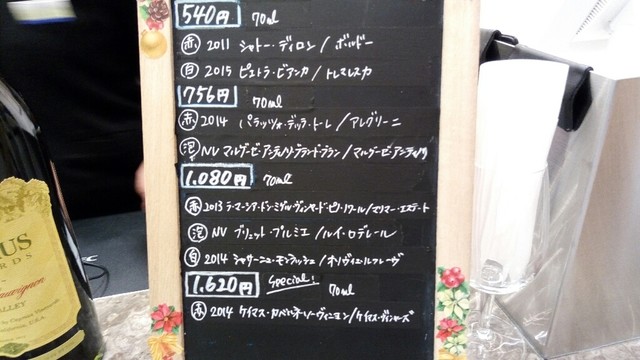 540円 70ml
赤 2011 シャトー・ディロン/ボルドー
白 2015 ピエトラ・ビアンカ/トルマレスカ
756円 70ml
赤 2014 パラッツォ・デッラ・トーレ/アレグリーニ
泡 NV マルケーゼ・アンティノリ・
1.080円 70ml
赤 2013 ラ・マシア・ドン・ミゲル・ヴィンヤード・ピノ・ノワール/マリマー・エステート
泡 NV ブリュット・プルミエ/ルイ・ロデレール
白 2014 シャサーニュ・モンラッシェ/オリヴィエ・ルフレーヴ
1.620円 Special! 70ml
赤 2014 ケイマス・カベルネ・ソーヴィニヨン/ケイマス・ヴィンヤーズ
US
RDS
Sauvignon
VALLEY
U.S.A.